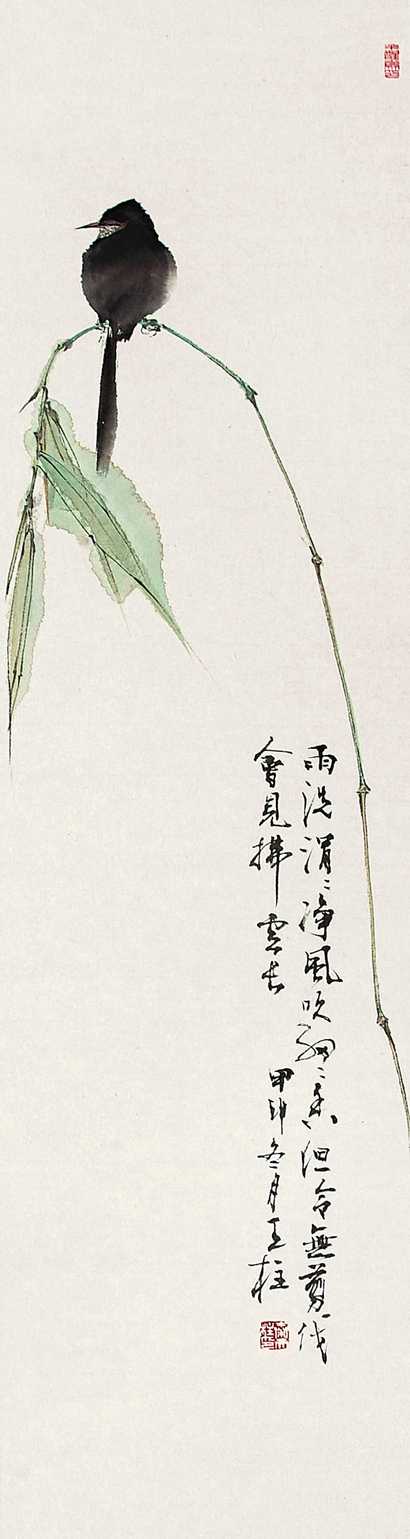 雨洗涓〻淨風吹細〻香但令無剪伐
會見拂雲長
甲申冬月王柱